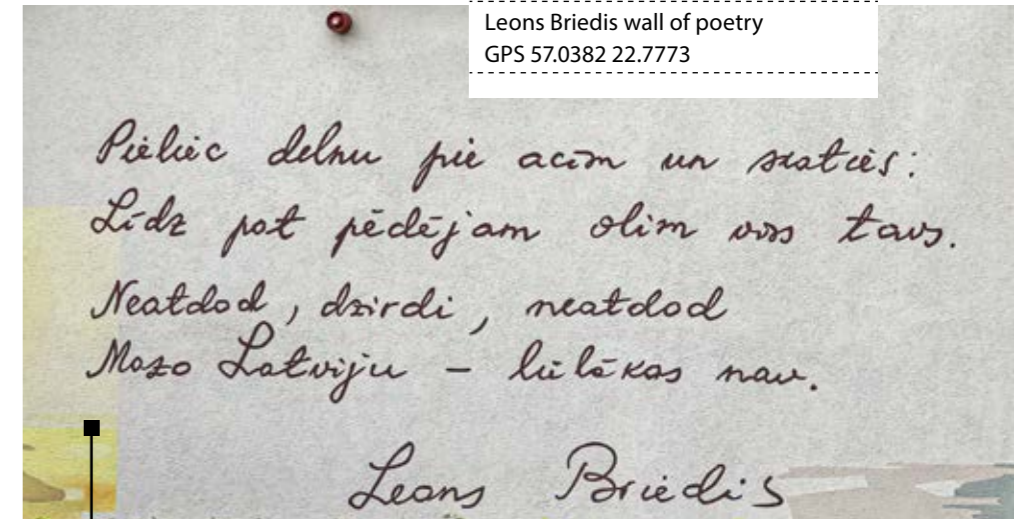 Leons Briedis wall of poetry
GPS 57.0382 22.7773
Pieliec delnu pie acīm un skaties:
Līdz pat pēdējam olim viss tavs.
Neatdod, dzirdi, neatdod
Mazo Latviju – lielākas nav.
Leons Briedis